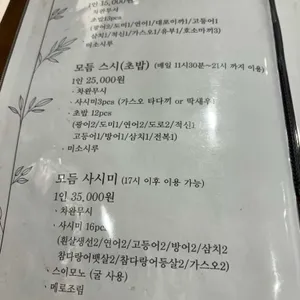 1인 15,000원
· 차완무시
초밥13pcs
(광어2/도미1/연어1/대로어깨1/고등어1
삼치1/적신1/가스오1/유부1/호소마끼3)
· 미소시루
모듬 스시(초밥) (매일 11시30분~21시 까지 이용)
1인 25,000원
· 차완무시
· 사시미3pcs (가스오 타다끼 or 딱새우)
· 초밥 12pcs
(광어2/도미1/연어2/도로2/적신1
고등어1/방어1/삼치1/전복1)
· 미소시루
모듬 사시미 (17시 이후 이용 가능)
1인 35,000원
· 차완무시
· 사시미 16pcs
(흰살생선2/연어2/고등어2/방어2/삼치2
참다랑어뱃살2/참다랑어등살2/가스오2)
· 스이모노 (굴 사용)
· 메로조림